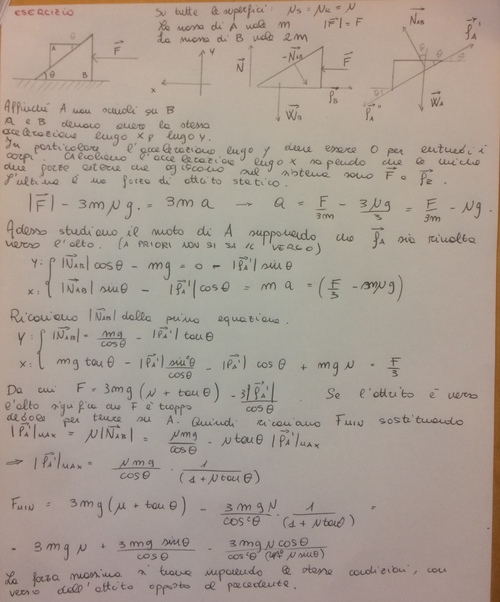 ESERCIZIO
Su tutte le superfici: μs = μk = μ
La massa di A vale m |F⃗| = F
La massa di B vale 2m
A
B
θ
F⃗
x
y
N⃗
-N⃗AB
F⃗
W⃗B
N⃗AB
W⃗A
θ
Affinché A non scivoli su B
A e B devono avere la stessa
accelerazione lungo x e lungo y.
In particolare l'accelerazione lungo y deve essere 0 per entrambi i
corpi. Calcoliamo l'accelerazione lungo x sapendo che le uniche
due forze esterne che agiscono sul sistema sono F⃗ e
L'ultima è una forza di attrito statico.
|F⃗| - 3mμg = 3ma → a = F/3m - 3μg/3 = F/3m - μg.
Adesso studiamo il moto di A supponendo che f⃗A sia rivolta
verso l'alto. (A PRIORI NON SI SA IL VERSO)
y: |N⃗AB| cosθ - mg = 0 - |f⃗A'| sinθ
x: |N⃗AB| sinθ - |f⃗A'| cosθ = ma = (F/3 - mμg)
Ricaviamo |N⃗AB| dalla prima equazione.
y: |N⃗AB| = mg/cosθ - |f⃗A'| tanθ
x: mg tanθ - |f⃗A'| sin²θ/cosθ - |f⃗A'| cosθ + mgμ = F/3
Da cui F = 3mg(μ + tanθ) - 3|f⃗A'|/cosθ . Se l'attrito è verso
l'alto significa che F è troppo
debole per tenere su A. Quindi ricaviamo FMIN sostituendo
|f⃗A'|MAX = μ|N⃗AB| = μmg/cosθ - μtanθ |f⃗A'|MAX
⇒ |f⃗A'|MAX = μmg/cosθ · 1/(1+μtanθ)
FMIN = 3mg(μ + tanθ) - 3mgμ/cos²θ · 1/(1+μtanθ) =
= 3mgμ + 3mg sinθ/cosθ - 3mgμ cosθ/cos²θ(cosθ μ sinθ)
La forza massima si trova imponendo le stesse condizioni, con
verso dell'attrito opposto al precedente.